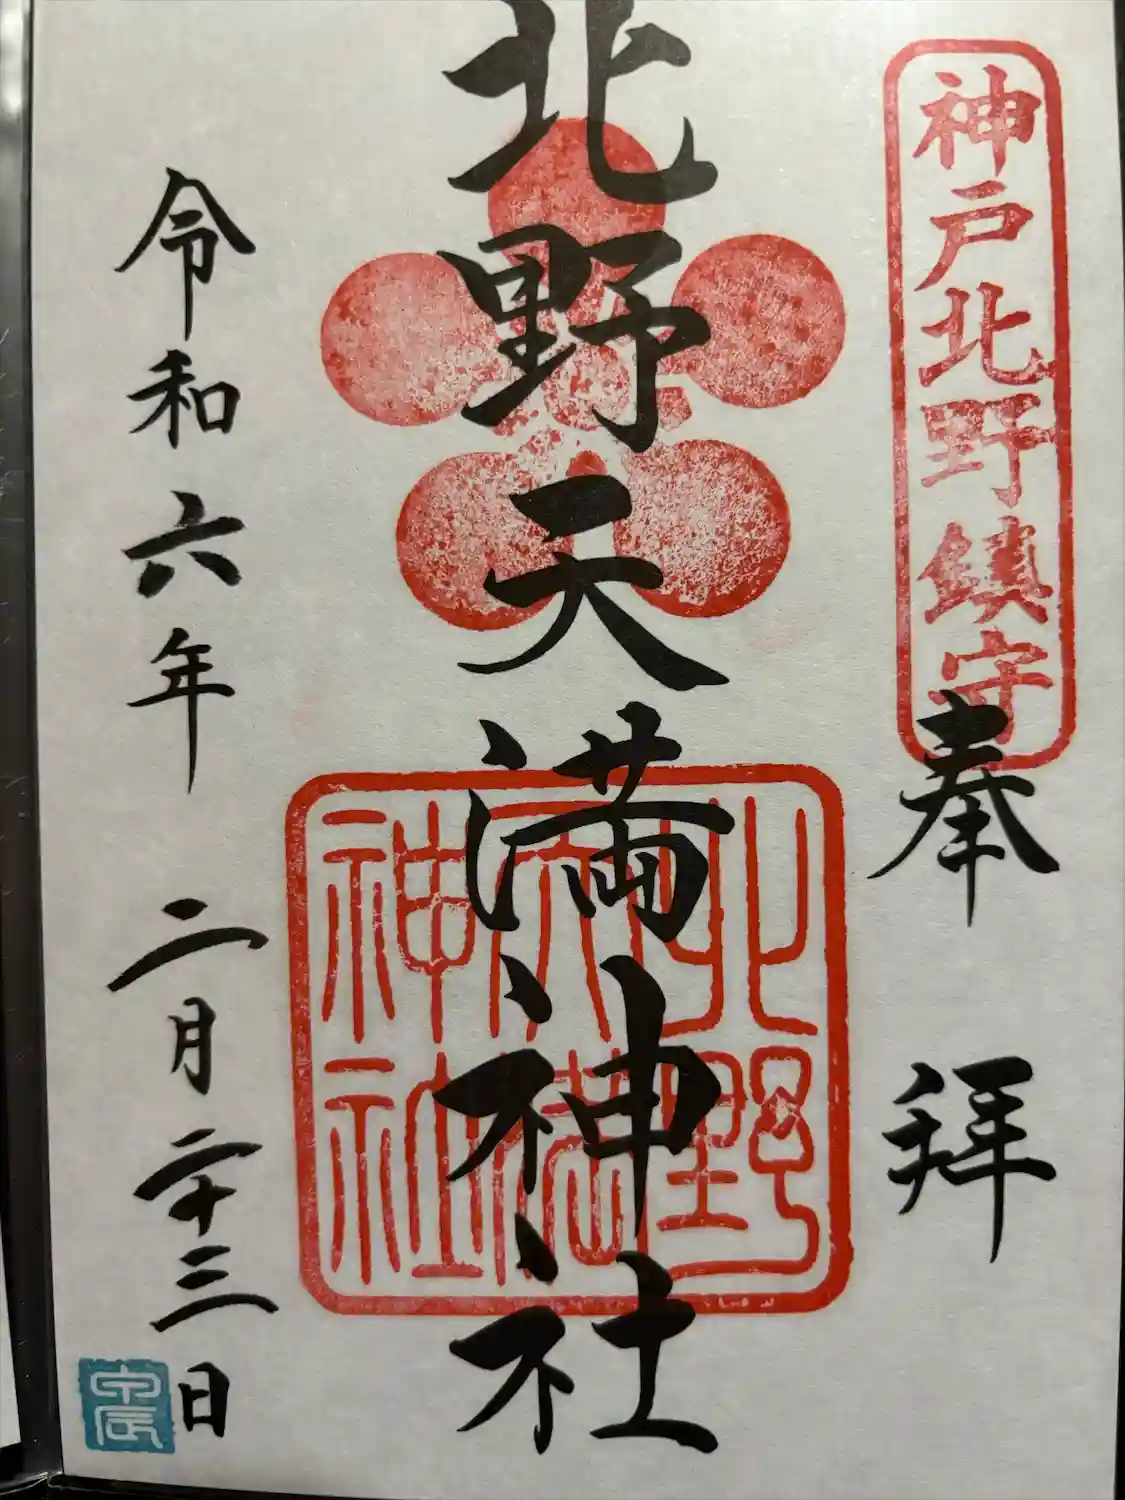 神戸北野鎮守
奉拝
北野天満神社
北野
天満
神社
令和六年 二月二十三日
甲辰